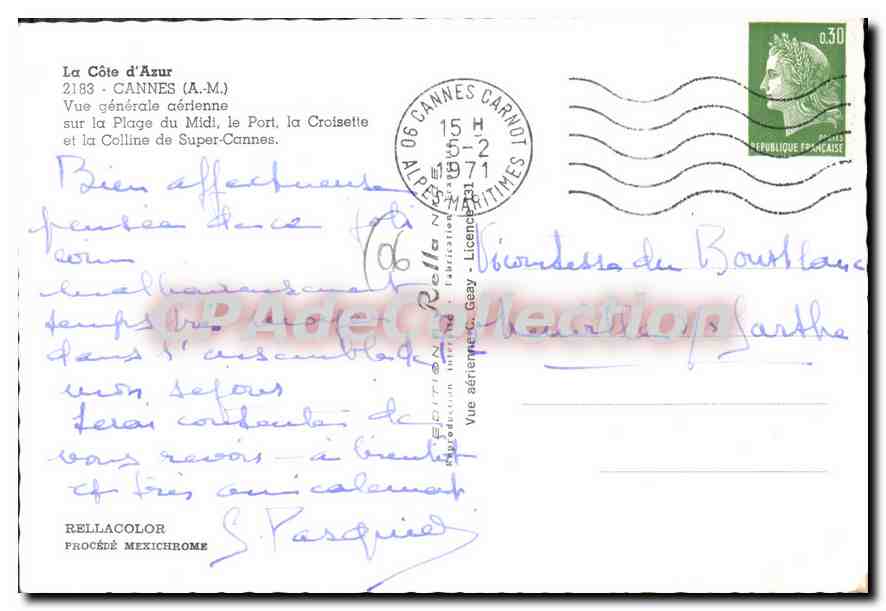 La Côte d'Azur
2183 - CANNES (A.-M.)
Vue générale aérienne
sur la Plage du Midi, le Port, la Croisette
et la Colline de Super-Cannes.
Bien affectueuse
pensée de ce joli
coin
malheureusement
temps très
dans l'ensemble de
mon séjour
serai contente de
vous revoir - à bientôt
et très amicalement
S. Pasquier
RELLACOLOR
PROCÉDÉ MEXICHROME
06 CANNES CARNOT
15 H
5-2
1971
ALPES-MARITIMES
0.30
POSTES
REPUBLIQUE FRANÇAISE
(06
EDITION Rella NICE
Reproduction interdite - Fabrication française
Vue aérienne C. Geay - Licence 131
Vicomtesse du
Sarthe
CPAdeCollection